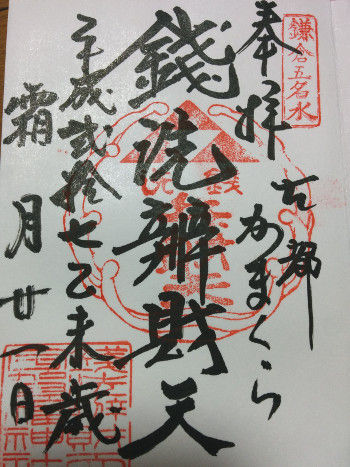 鎌倉五名水
奉拝
古都
かまくら
錢洗辨財天
平成貳拾七乙未歳
霜月廿一日